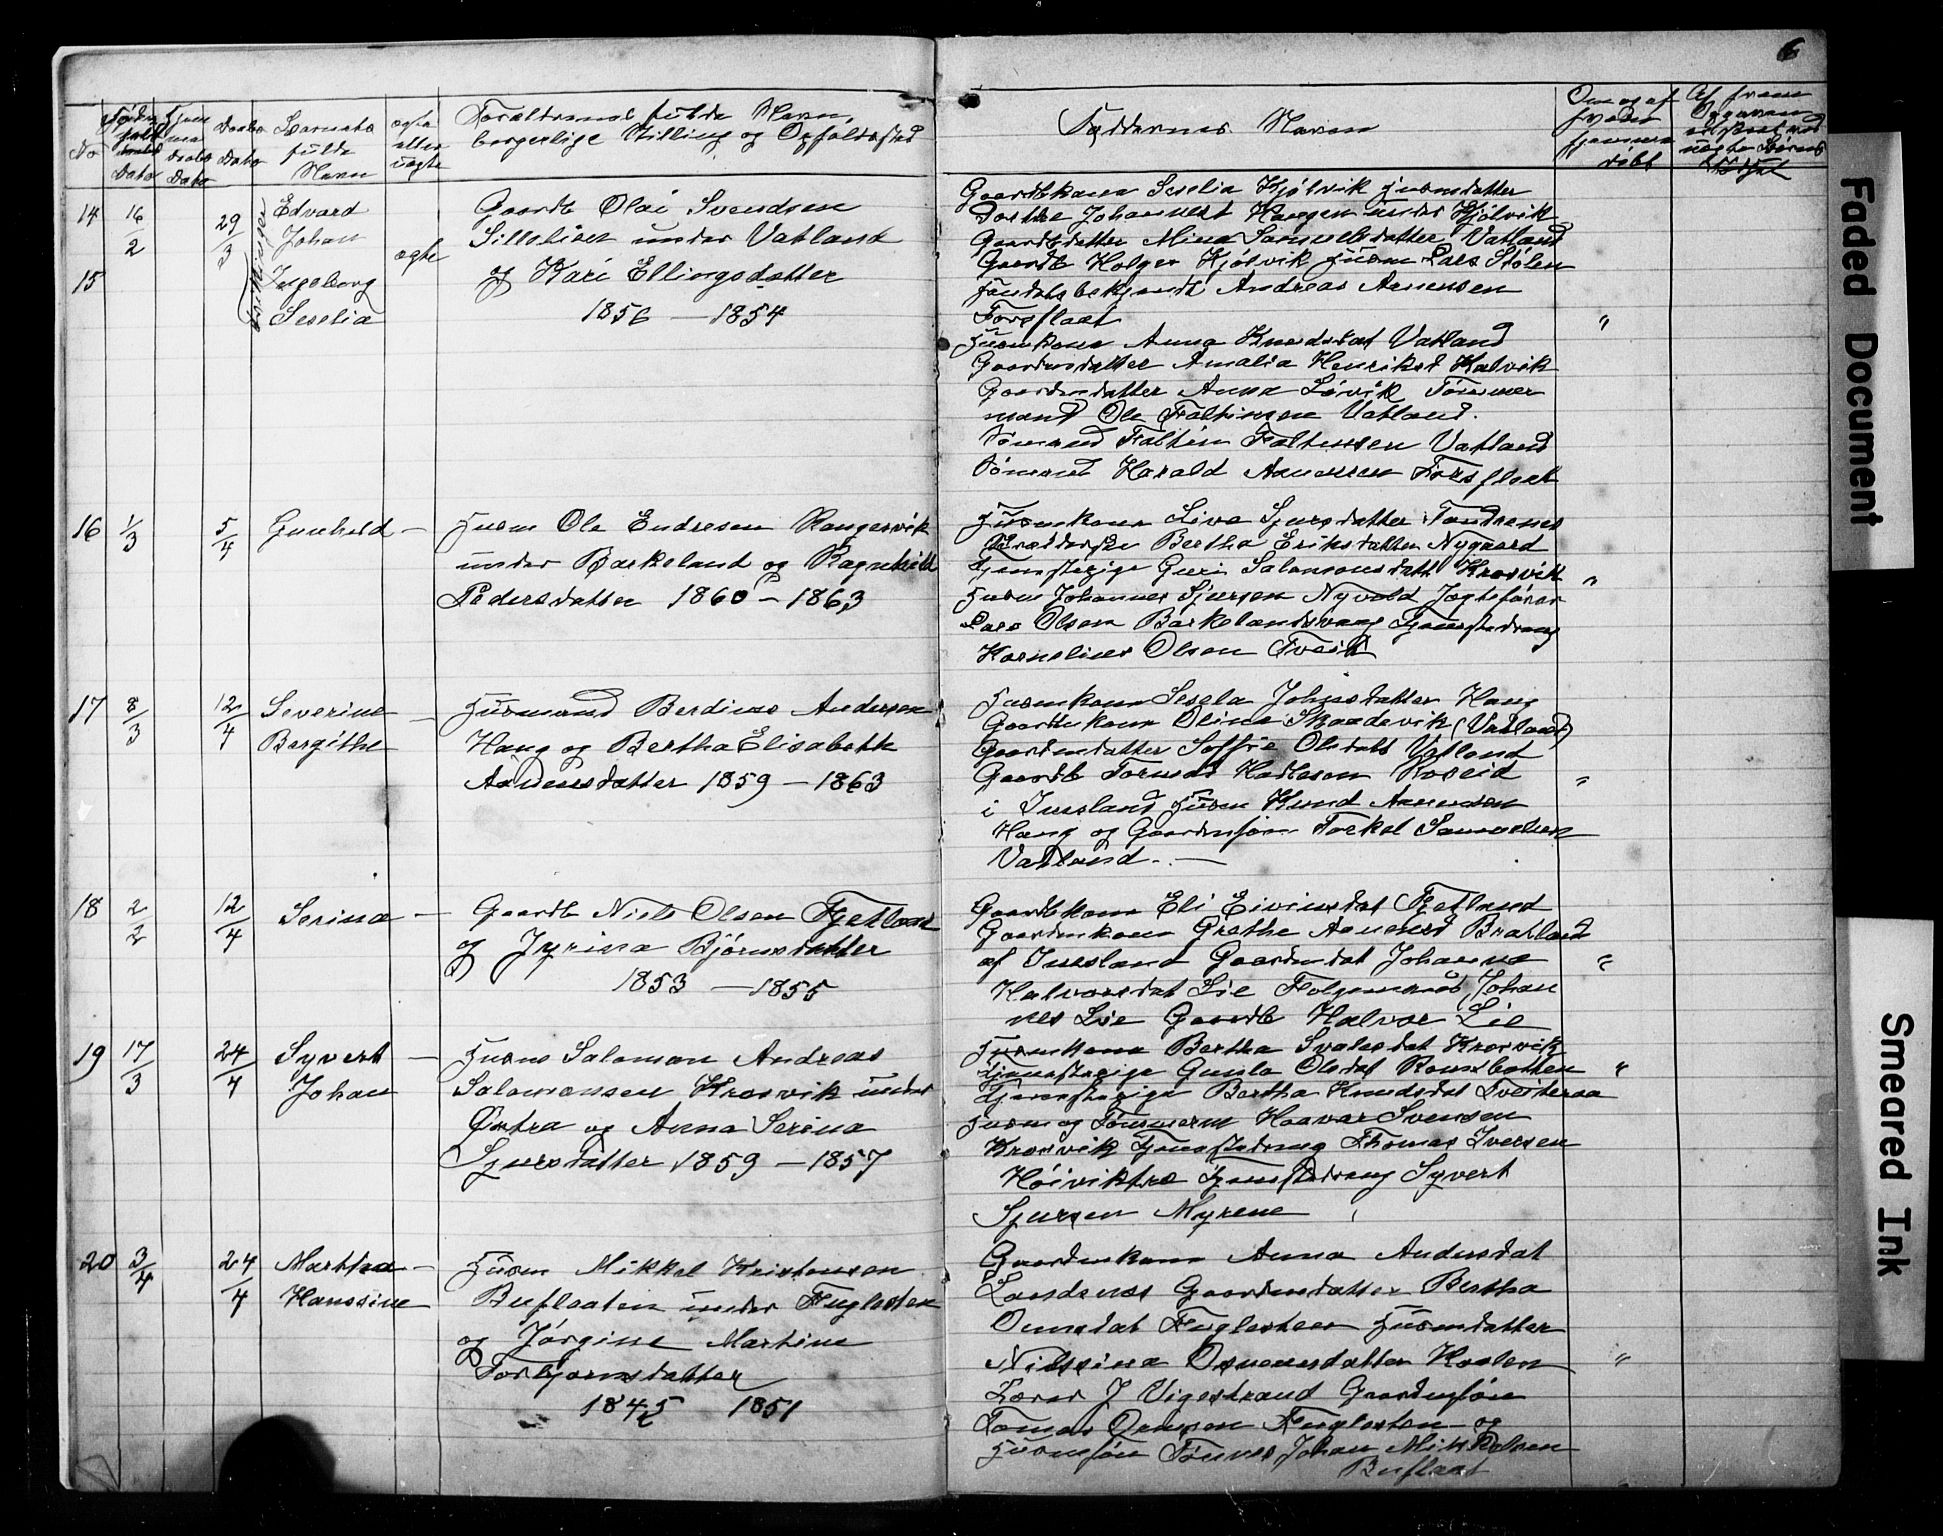 6
No
Fødsels Dato
Hjemmedaabs Dato
Daabs Dato
Barnets fulde Navn
ægte eller uægte
Forældrenes fulde Navn,
borgerlige Stilling og Opholdssted
Faddernes Navn
Om og af hvem hjemmedøbt
14 16/2 29/3 Edvard
Johan
ægte
15 Ingeborg
Seselia
Tvillinger
Gaardb Olai Svendsen
Silletiser under Vatland
og Kari Ellingsdatter
1856 – 1854
Gaardbkone Seselia Kjølvik Husmdatter
Dorthe Johannesd Haugen under Kjølvik
Gaardbdatter Mina Samuelsdatter Vatland
Gaardb Holger Kjølvik Husm Lars Stølen
Andreas Arnensen
Forsflaat
"
Huskone Anna Knudsdat Vatland
Gaardmdatter Amalia Henriksd Kalvik
Gaardmdatter Anna Løvik Tømmer
mand Ole Faltinsen Vatland.
Sømand Faltin Faltinsen Vatland
Sømand Harald Aanensen Forsflaat
16 1/3 5/4 Gunhild –
Husm Ole Endresen Rangesvik
under Barkeland og Ragnhild
Pedersdatter 1860 – 1863
Husmkone Live Sjursdatter Tondrenes
Bertha Eriksdatter Nygaard
Tjenestepige Guri Salamonsdatt Krosvik
Husm Johannes Sjursen Nyvold Jagtefører
Lars Olsen Barkelandsvaag Tjenestedreng
Kornelius Olsen Tveit
"
17 8/3 12/4 Severine –
Bergithe
Husmand Berdines Andersen
Haug og Bertha Elisabeth
Aanensdatter 1859 – 1863
Husmkone Sesela Johnsdatter Haug
Gaardbkone Oline Skaadevik (Vatland)
Gaardmdatter Soffie Olsdatt Vatland
Gaardb Tormod Hadleson Roseid
i Imsland Husm Knud Aanensen
Haug og Gaardmsøn Torkel Samuelsen
Vatland. –
"
18 2/2 12/4 Serina –
Gaardb Niels Olsen Fjetland
og Jyrina Bjørnsdatter
1853 – 1855
Gaardbkone Eli Eivinsdat Fjetland
Gaardmkone Grethe Aanensd Bratland
af Imsland Gaardmdat Johanna
Halvorsdat Lie Følgemand Johan
nes Lie Gaardb Halvor Lie
"
19 17/3 24/4 Syvert –
Johan
Husm Salomon Andreas
Salomonsen Krosvik under
Østra og Anna Serina
Sjursdatter 1859 – 1857
Husmkone Bertha Svalesdat Krosvik
Tjenestepige Gunla Olsdat Ramsbotten
Tjenestepige Bertha Knudsdat Tveiteraa
Husm og Tømmerm Haavar Svensen
Krosvik Tjenestedreng Thomas Iversen
Høiviktræ Tjenestedreng Syvert
Sjursen Myrene
"
20 3/4 24/4 Marthea –
Hanssine
Husm Mikkel Kristensen
Buflaaten under Fuglesten
og Jørgine Martine
Torbjørnsdatter
1845 1851
Gaardmkone Anna Andersdat
Landsnes Gaardmdatter Bertha
Omsdat Fuglesteen Husmdatter
Nilssina Osmunsdatter Haalen
Lærer J Vigestrand Gaardmsøn
Tomas Omsen Fuglesten og
Husmsøn Tønnes Johan Mikkelsen
Buflaat
"
Faded Document
Smeared Ink